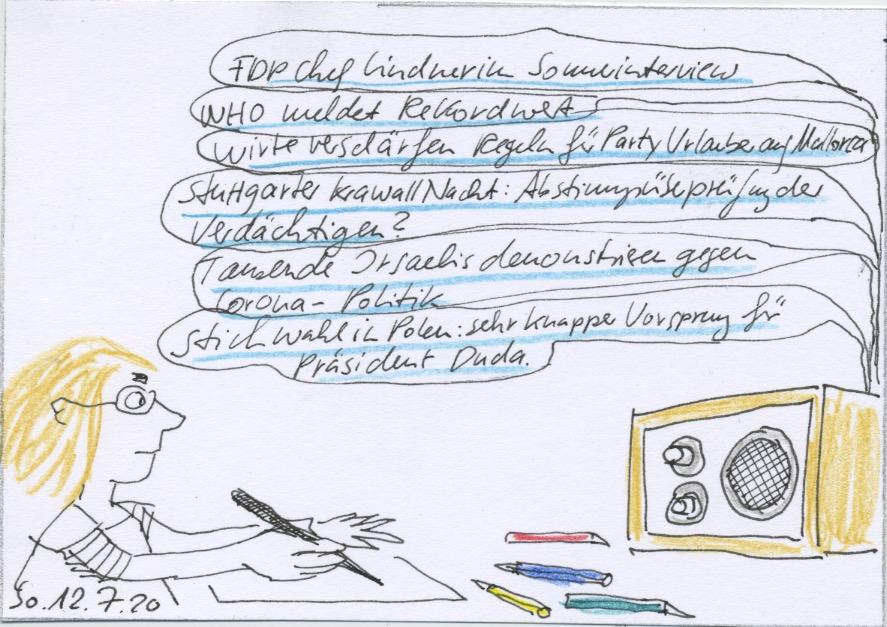 FDP Chef Lindner im Sommerinterview
WHO meldet Rekordwert
Wirte verschärfen Regeln für Party Urlauber auf Mallorca
Stuttgarter Krawall Nacht: der
Verdächtigen?
Tausende Israelis demonstrieren gegen
Corona-Politik
Stichwahl in Polen: sehr knapper Vorsprung für
Präsident Duda.
So. 12.7.20